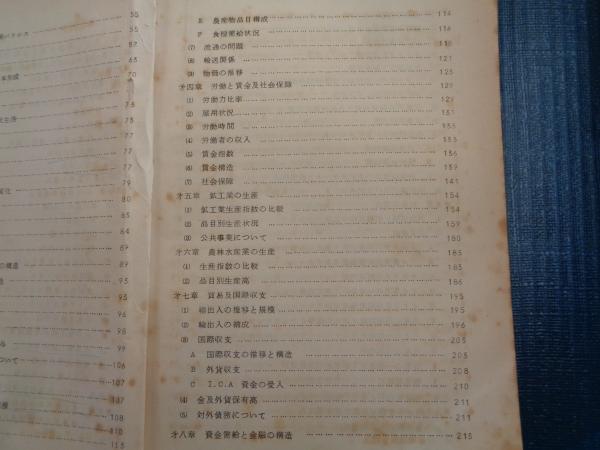 55
55
82
63
70
73
75
77
77
79
79
80
84
89
89
95
95
96
98
99
ついて 106
107
107
108
113
E 農産物品目構成 114
F 食糧需給状況 116
(7) 流通の問題
(8) 輸送関係 121
(9) 物価の推移 125
才四章 労働と賃金及社会保障 129
(1) 労働力比率 129
(2) 雇用状況 131
(3) 労働時間 133
(4) 労働者の収入 134
(5) 賃金指数 136
(6) 賃金構造 139
(7) 社会保障 141
才五章 鉱工業の生産 154
(1) 鉱工業生産指数の比較 154
(2) 品目別生産状況 159
(3) 公共事業について 180
才六章 農林水産業の生産 185
(1) 生産指数の比較 185
(2) 品目別生産高 186
才七章 貿易及国際収支 195
(1) 輸出入の推移と規模 195
(2) 輸出入の構成 196
(3) 国際収支 203
A 国際収支の推移と構造 203
B 外貨収支 208
C I.C.A 資金の受入 210
(4) 金及外貨保有高 211
(5) 対外債務について 211
才八章 資金需給と金融の構造 215